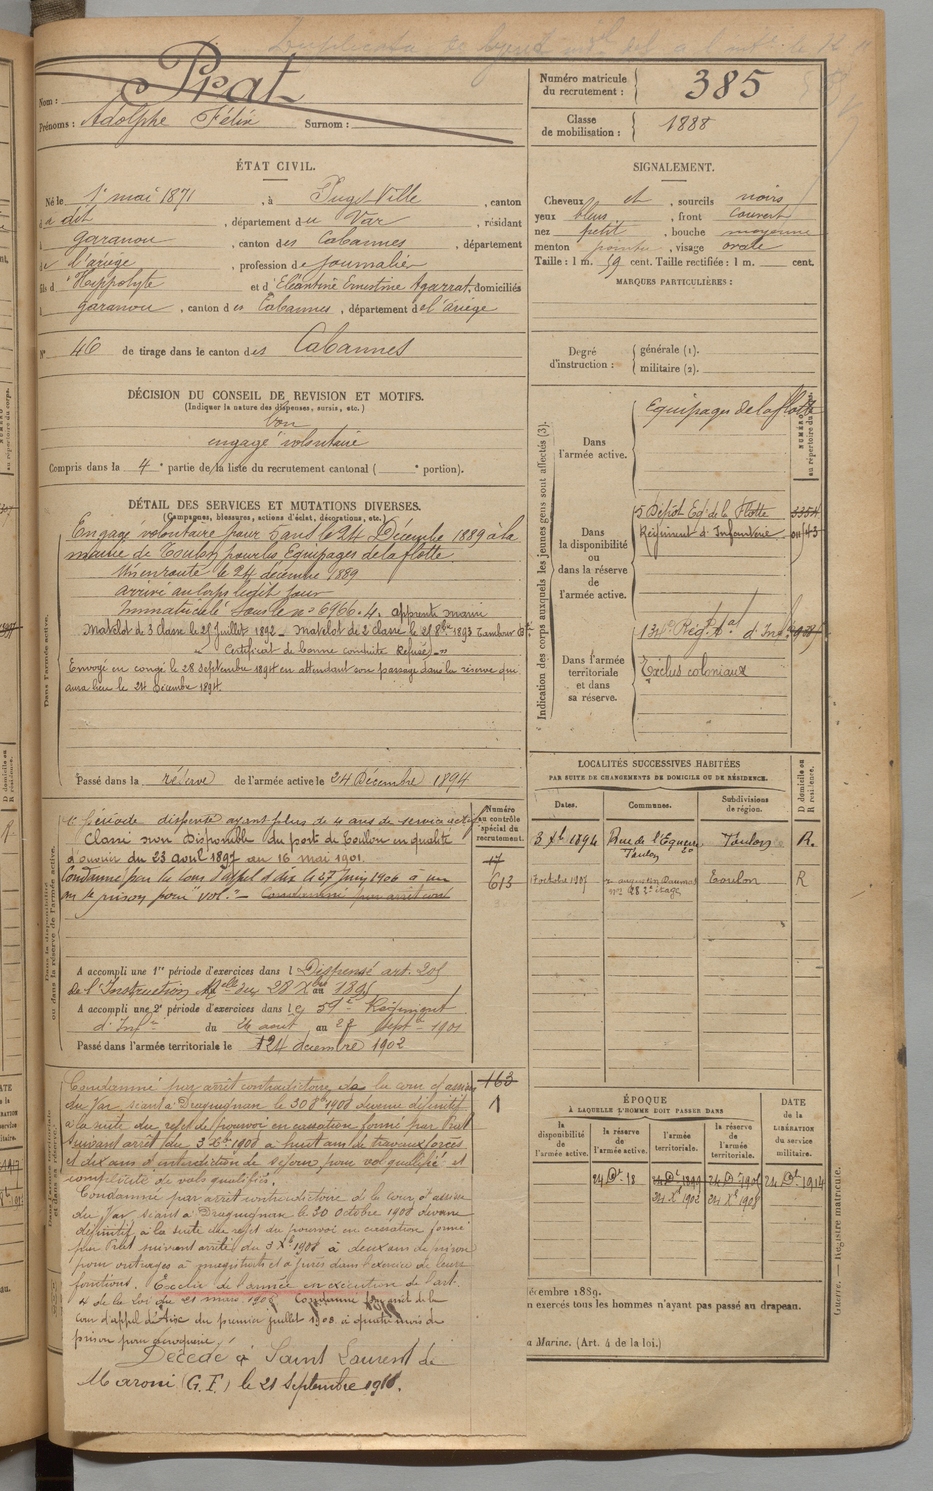 Nom : Prat
Prénoms : Adolphe Félix Surnom :
Numéro matricule du recrutement : 385
Classe de mobilisation : 1888
ÉTAT CIVIL.
Né le 1er mai 1871, à Puget-Ville, canton
du dit, département du Var, résidant
à Garanou, canton des Cabannes, département
de l'ariège, profession de journalier
fils d'Hippolyte et d'Eléantine Ernestine Agarrat, domiciliés
à garanou, canton des Cabannes, département de l'ariège
N° 46 de tirage dans le canton des Cabannes
SIGNALEMENT.
Cheveux et, sourcils noirs
yeux bleus, front couvert
nez petit, bouche moyenne
menton pointu, visage ovale
Taille : 1 m. 59 cent. Taille rectifiée : 1 m. cent.
MARQUES PARTICULIÈRES :
Degré d'instruction : générale (1). militaire (2).
DÉCISION DU CONSEIL DE REVISION ET MOTIFS.
(Indiquer la nature des dispenses, sursis, etc.)
bon
engagé volontaire
Compris dans la 4e partie de la liste du recrutement cantonal ( e portion).
DÉTAIL DES SERVICES ET MUTATIONS DIVERSES.
(Campagnes, blessures, actions d'éclat, décorations, etc.)
Dans l'armée active.
Engagé volontaire pour 5 ans le 24 Décembre 1889 à la
mairie de Toulon pour les Equipages de la flotte
Mis en route le 24 décembre 1889
arrivé au corps le dit jour
Immatriculé sous le no 6966.4. apprenti marin
Matelot de 3 classe le 25 juillet 1892 - Matelot de 2 classe le 25 8bre 1893 Tambour
Certificat de bonne conduite Refusé
Envoyé en congé le 28 Septembre 1894 en attendant son passage dans la réserve qui
aura lieu le 24 Décembre 1894
Passé dans la réserve de l'armée active le 24 Décembre 1894
Indication des corps auxquels les jeunes gens sont affectés (3).
NUMÉRO au répertoire du corps.
Dans l'armée active. Equipages de la flotte
Dans la disponibilité ou dans la réserve de l'armée active.
5 Dépôt Eq. de la Flotte
Régiment d'Infanterie
Dans l'armée territoriale et dans sa réserve.
Exclus coloniaux
LOCALITÉS SUCCESSIVES HABITÉES
PAR SUITE DE CHANGEMENTS DE DOMICILE OU DE RÉSIDENCE.
Dates. Communes. Subdivisions de région. D domicile ou R résidence.
3 Xb 1894 Rue de l'Equerre 20 Toulon Toulon R.
17 octobre 1907 Toulon R
Numéro au contrôle spécial du recrutement.
17
613
dispensé ayant plus de 4 ans de service actif
Classé non Disponible du port de Toulon en qualité
d'ouvrier du 23 avril 1897 au 16 mai 1901.
Condamné par la cour d'appel d'Aix le 27 juin 1906 à un
an de prison pour "vol". - Condamné par arrêt cont
A accompli une 1re période d'exercices dans l Dispensé art. 205
de l'Instruction du 28 Xbre 1895
A accompli une 2e période d'exercices dans le
d'Infie du 26 août au 22 Septe 1901
Passé dans l'armée territoriale le 24 décembre 1902
163
1
Condamné par arrêt contradictoire de la cour d'assises
du Var séant à Draguignan le 30 8bre 1908 devenu définitif
à la suite du rejet du pourvoi en cassation formé par Prat
suivant arrêt du 3 Xbre 1908 à huit ans de travaux forcés
et dix ans d'interdiction de séjour pour vol qualifié et
complicité de vols qualifiés.
Condamné par arrêt contradictoire de la cour d'assises
du Var séant à Draguignan le 30 octobre 1908 devenu
définitif à la suite du rejet du pourvoi en cassation formé
par Prat suivant arrêté du 3 Xb 1908 à deux ans de prison
pour outrages à magistrats et à jurés dans l'exercice de leurs
fonctions. Exclu de l'armée en exécution de l'art.
4 de la loi du 21 mars 1905 Condamné par arrêt de la
cour d'appel d'Aix du premier juillet 1908 à quatre mois de
prison pour
Décédé à Saint Laurent de
Maroni (G. F.) le 21 Septembre 1916.
ÉPOQUE
À LAQUELLE L'HOMME DOIT PASSER DANS
la disponibilité de l'armée active. la réserve de l'armée active. l'armée territoriale. la réserve de l'armée territoriale.
DATE de la LIBÉRATION du service militaire.
24 Dre 1914
24 Xb 1902 24 Xb 1908
écembre 1889.
n exercés tous les hommes n'ayant pas passé au drapeau.
a Marine. (Art. 4 de la loi.)
Guerre. — Registre matricule.